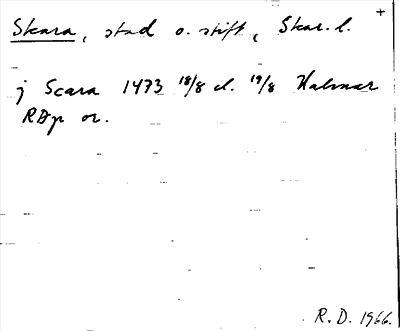 +
Skara, stad o. stift, Skar. l.
j Scara 1473 18/8 el. 19/8 Kalmar
RAp or.
R.D. 1966.